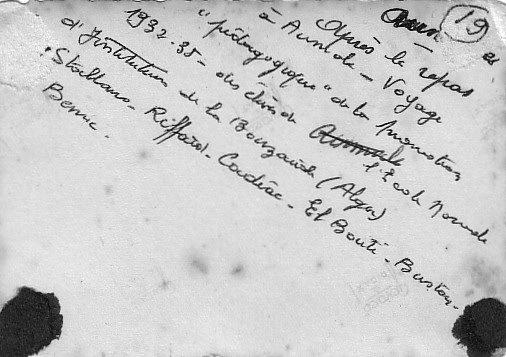 19
Après le repas
à Aumale - Voyage
"pédagogique" de la Promotion
1932-35 - des élèves de l'Ecole Normale
d'Instituteurs de la Bouzaréah (Alger)
Riffard - Coudirc - El Bouti - Buston -